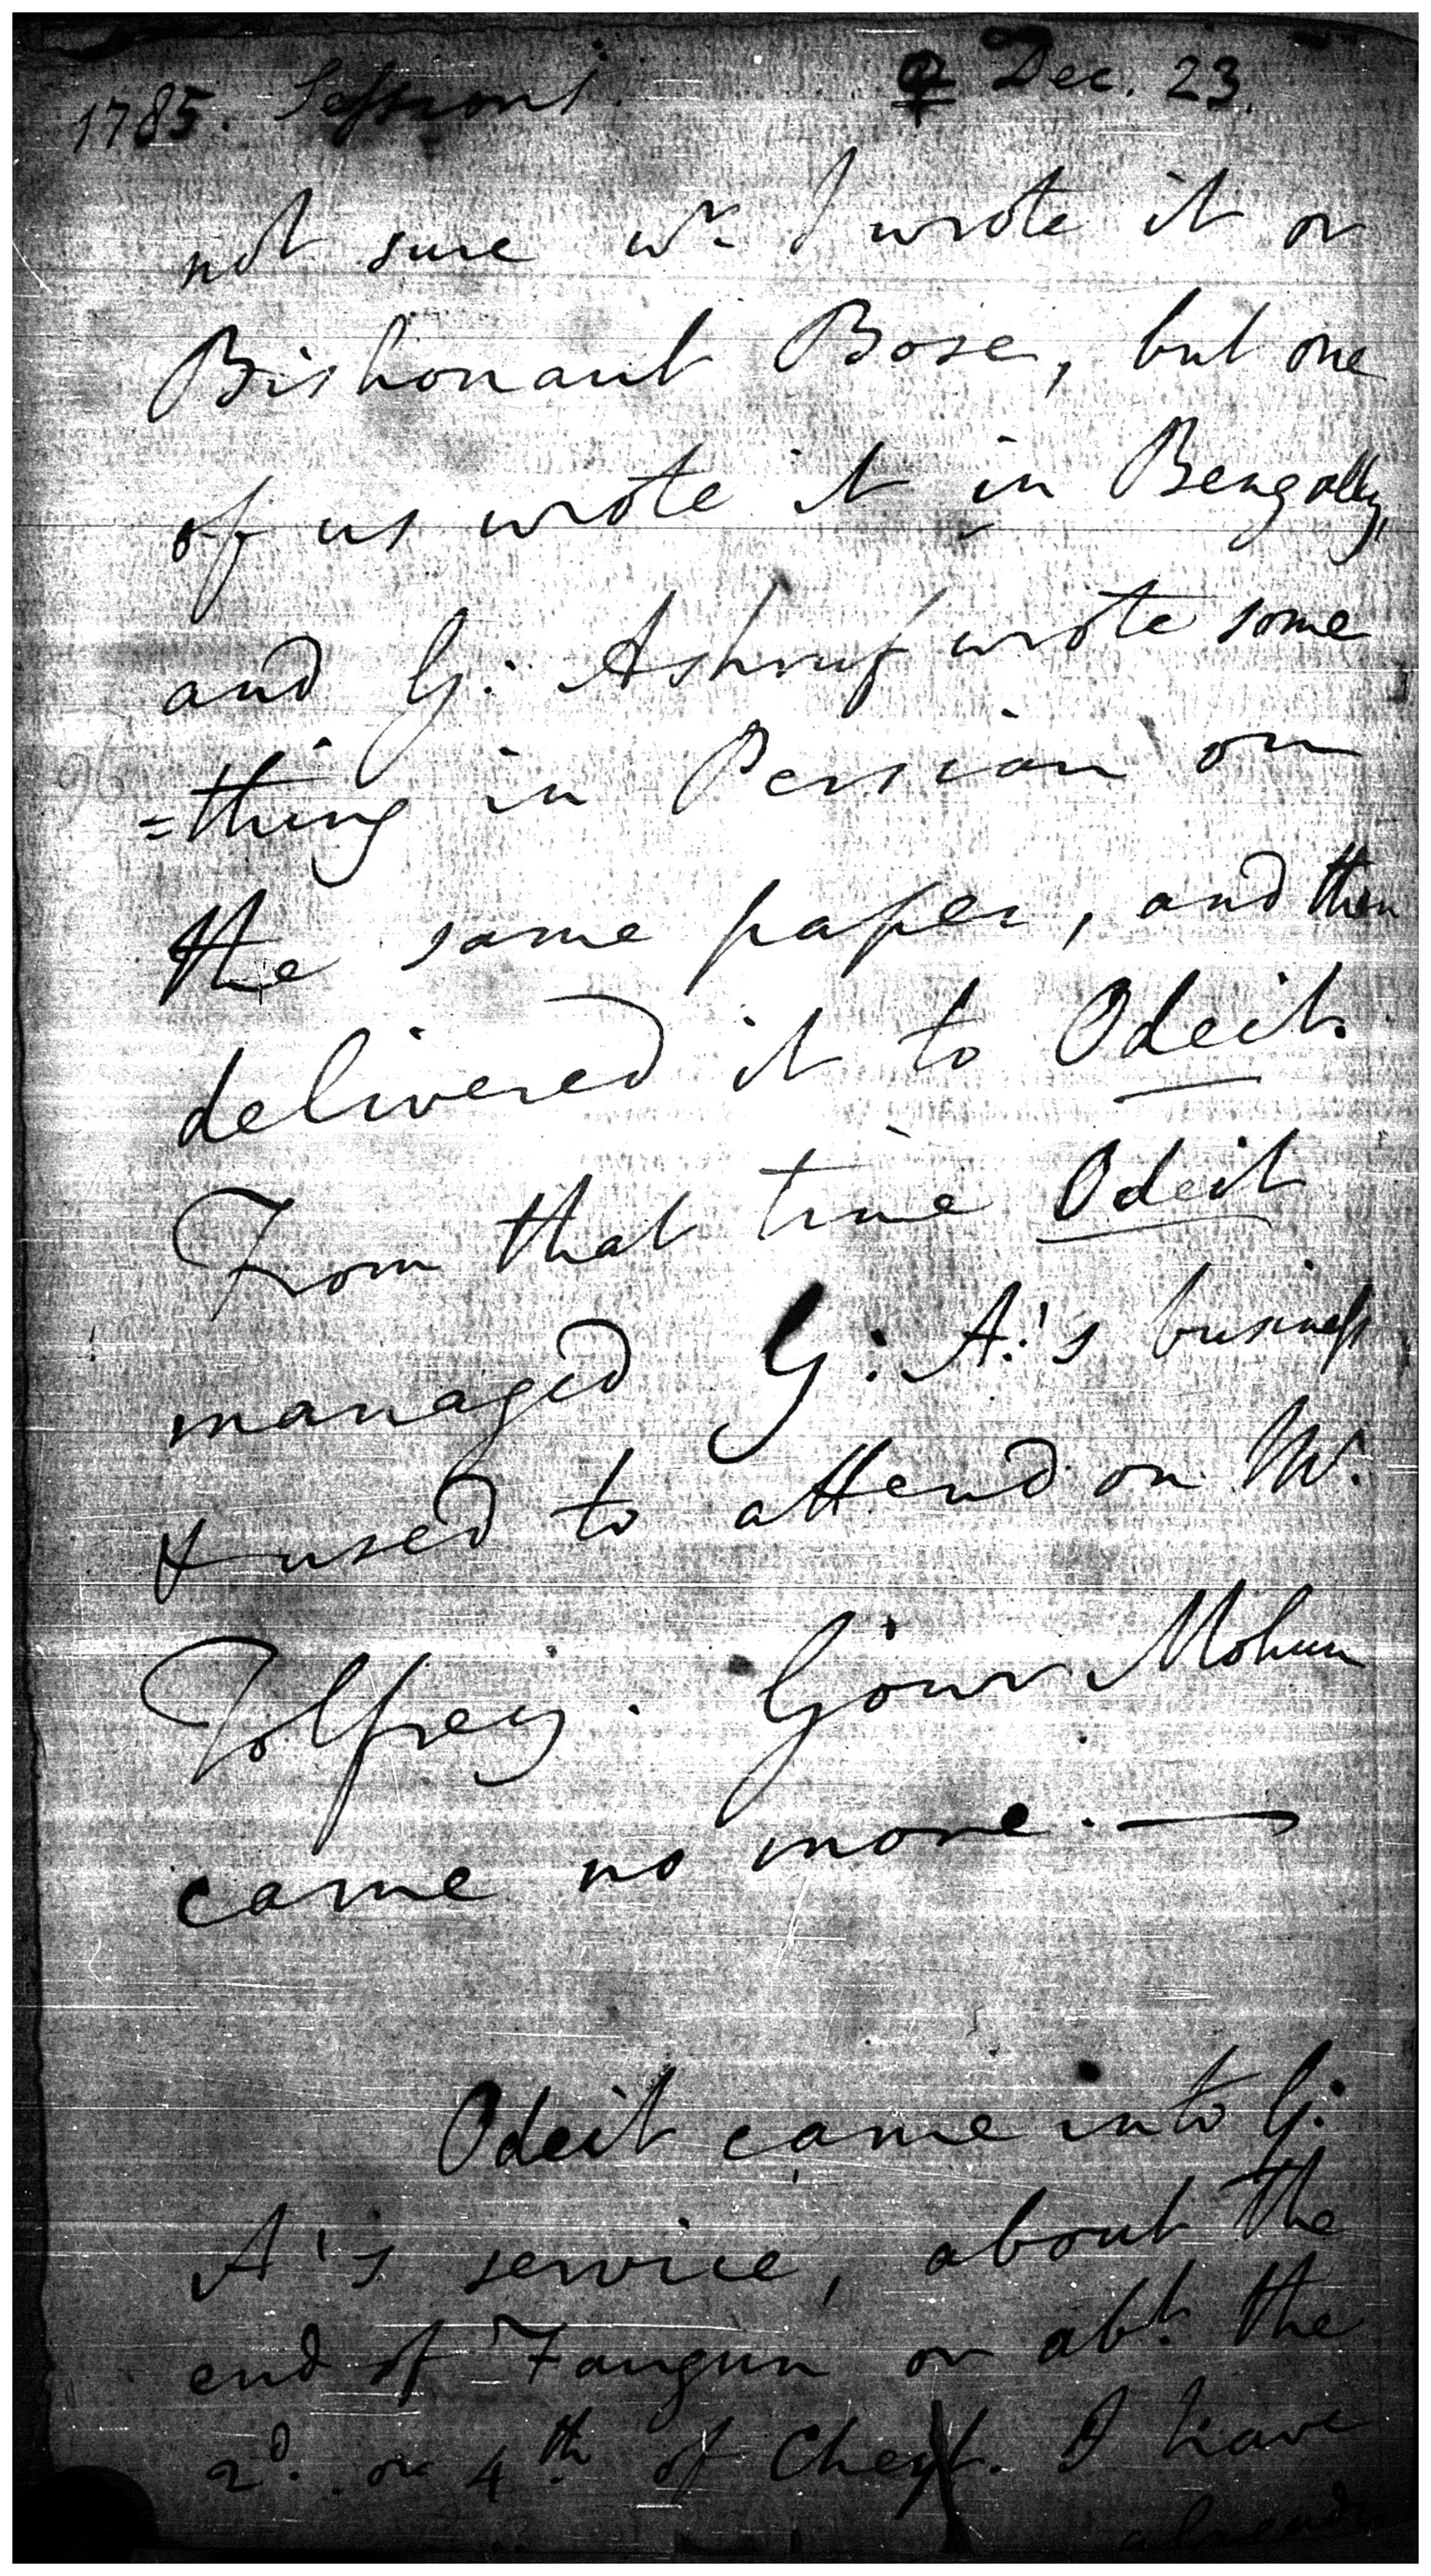 1785. Sessions. ♀ Dec. 23.
not sure wr. I wrote it or
Bishonaut Bose, but one
of us wrote it in Bengally,
and G: Ashruf wrote some
=thing in Persian on
the same paper, and then
delivered it to Odeit.
From that time Odeit
managed G: A:'s business
& used to attend on Mr.
Tolfrey. Gour Mohun
came no more. —
Odeit came into G:
A's service, about the
end of Faugun or abt. the
2d. or 4th. of Cheyt. I have
already